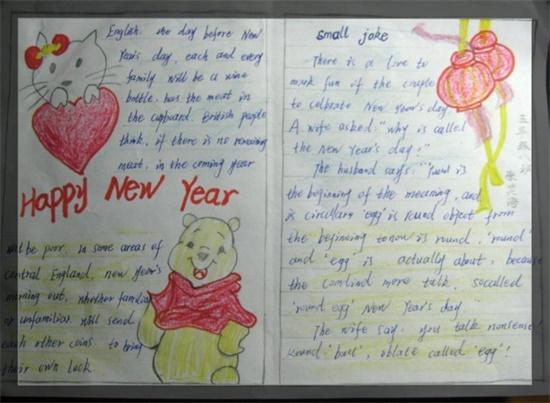 English, the day before New
Year's day, each and every
family will be a wine
bottle, has the meat in
the cupboard. British people
think, if there is no remaining
meat, in the coming year
Happy New Year
will be poor. In some areas of
central England, new year's
morning out, whether familiar
or unfamiliar, will send
each other coins. to bring
their own luck.
small joke
There is a love to
make fun if the couple
to celbrate New Year's day
A wife asked: "Why is called
the New Year's day?"
The husband says: "
the beginning of the meaning, and
is circular 'egg' is round object from
the beginning to now is round, 'round'
and 'egg' is actually about, because
the more talk, socalled
'round egg' New Year's day."
The wife say: you talk nonsense!
Round 'ball', oblate called 'egg'!
三年级八班
张